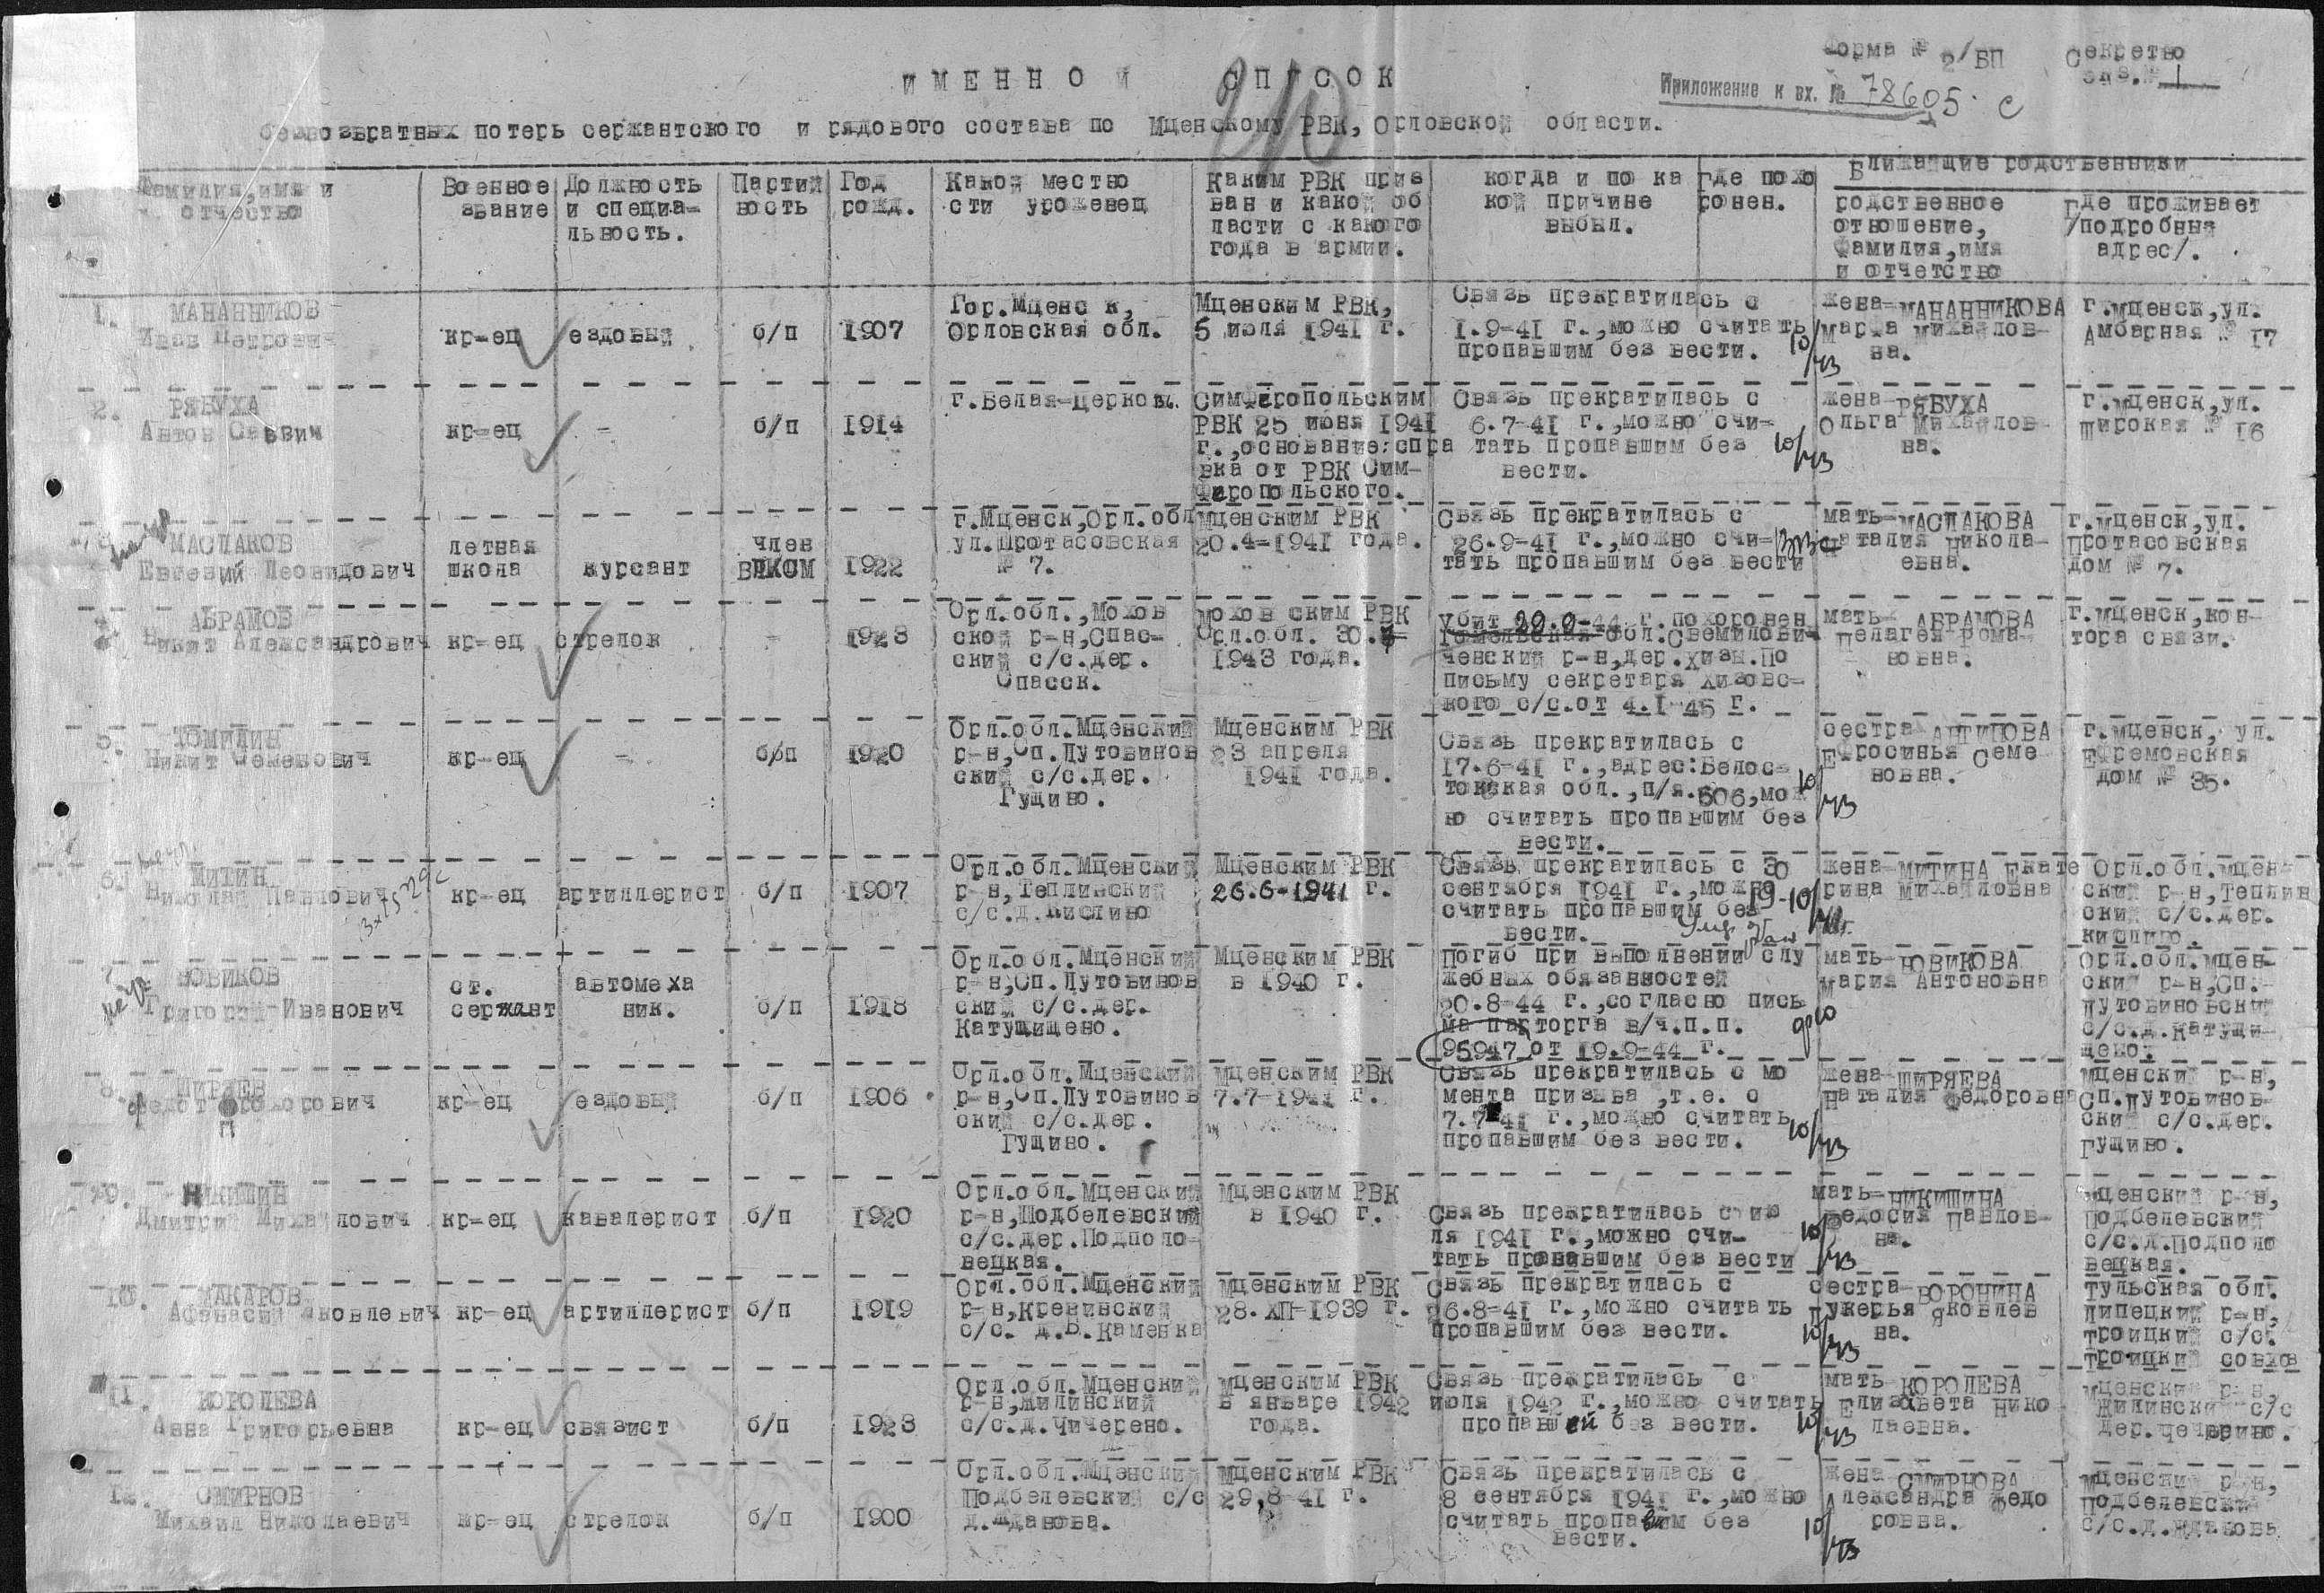 Форма № 2/БП Секретно
экз.№ 1
ИМЕННОЙ СПИСОК
Приложение к вх. № 78605 с
безвозвратных потерь сержантского и рядового состава по Мценскому РВК, Орловской области.
Фамилия,имя и
отчество
Военное
звание
Должность
и специа-
льность.
Партий
ность
Год
рожд.
Какой местно
сти уроженец
Каким РВК приз
ван и какой об
ласти с какого
года в армии.
когда и по ка
кой причине
выбыл.
Где похо
ронен.
Ближайшие родственники
родственное
отношение,
Фамилия,имя
и отчетство
Где проживает
/подробный
адрес/.
1. МАНАННИКОВ
Иван Петрович
кр-ец
ездовый
б/п
1907
Гор.Мценс к,
Орловская обл.
Мценским РВК,
5 июля 1941 г.
Связь прекратилась с
1.9-41 г.,можно считать
пропавшим без вести.
10/43
жена-МАНАННИКОВА
Мария Михайлов-
на.
г.Мценск,ул.
Амбарная № 17
2. РЯБУХА
Антон Саввич
кр-ец
-
б/п
1914
г.Белая-Церковь.
Симферопольским
РВК 25 июня 1941
г.,основание:спра
вка от РВК Сим-
феропольского.
Связь прекратилась с
6.7-41 г.,можно счи-
тать пропавшим без
вести.
10/43
жена-РЯБУХА
Ольга Михайлов-
на.
г.Мценск,ул.
Широкая № 16
МАСЛАКОВ
Евгений Леонидович
летная
школа
курсант
член
ВЛКСМ
1922
г.Мценск,Орл.обл
ул.Протасовская
№ 7.
Мценским РВК
20.4-1941 года.
Связь прекратилась с
26.9-41 г.,можно счи-
тать пропавшим без вести
мать-МАСЛАКОВА
Наталия Никола-
евна.
г.Мценск,ул.
Протасовская
дом № 7.
АБРАМОВ
Никит Александрович
кр-ец
стрелок
-
1923
Орл.обл.,Мохов
ской р-н,Спас-
ский с/с.дер.
Спасск.
Моховским РВК
Орл.обл. 30.
1943 года.
Убит 29.9-44 г.похоронен
Гомельская обл.Свемилови-
чевский р-н,дер.Хизы.По
письму секретаря Хизовс-
кого с/с.от 4.1-45 г.
мать- АБРАМОВА
Пелагея Рома-
новна.
г.Мценск,кон-
тора связи.
5. ТОМИЛИН
Никит Семенович
кр-ец
-
б/п
1920
Орл.обл.Мценский
р-н,Сп.Лутовинов
ский с/с.дер.
Гущино.
Мценским РВК
23 апреля
1941 года.
Связь прекратилась с
17.6-41 г.,адрес:Белос-
токская обл.,п/я.606,мож
но считать пропавшим без
вести.
10/43
сестра АНТИПОВА
Ефросинья Семе
новна.
г.Мценск, ул.
Ефремовская
дом № 35.
6. МИТИН
Николай Павлович
кр-ец
артиллерист
б/п
1907
Орл.обл.Мценский
р-н,Теплинский
с/с.д.Кислино
Мценским РВК
26.6-1941 г.
Связь прекратилась с 30
сентября 1941 г.,можно
считать пропавшим без
вести.
жена-МИТИНА Екате
рина Михайловна
Орл.обл.Мцен-
ский р-н,Теплин
ский с/с.дер.
Кислино.
7. НОВИКОВ
Григорий-Иванович
ст.
сержант
автомеха
ник.
б/п
1918
Орл.обл.Мценский
р-н,Сп.Лутовинов
ский с/с.дер.
Катущищено.
Мценским РВК
в 1940 г.
Погиб при выполнении слу
жебных обязанностей
30.8-44 г.,согласно пись
ма парторга в/ч.п.п.
95947 от 19.9-44 г.
мать-НОВИКОВА
Мария Антоновна
Орл.обл.Мцен-
ский р-н,Сп.-
Лутовиновский
с/с.д.Катущи-
щено.
8. ШИРЯЕВ
Федот Прохорович
кр-ец
ездовый
б/п
1906
Орл.обл.Мценский
р-н,Сп.Лутовинов
ский с/с.дер.
Гущино.
Мценским РВК
7.7-1941 г.
Связь прекратилась с мо
мента призыва ,т.е. с
7.7-41 г.,можно считать
пропавшим без вести.
10/43
жена-ШИРЯЕВА
Наталия Федоровна
Мценский р-н,
Сп.Лутовинов-
ский с/с.дер.
Гущино.
9. НИКИШИН
Дмитрий Михайлович
кр-ец
кавалерист
б/п
1920
Орл.обл.Мценский
р-н,Подбелевский
с/с.дер.Подполо-
вецкая.
Мценским РВК
в 1940 г.
Связь прекратилась с ию
ля 1941 г.,можно счи-
тать пропавшим без вести
10/43
мать-НИКИШИНА
Федосия Павлов-
на.
Мценский р-н,
Подбелевский
с/с.д.Подполо
вецкая.
10. МАКАРОВ
Афанасий Яковлевич
кр-ец
артиллерист
б/п
1919
Орл.обл.Мценский
р-н,Кренинский
с/с. д.В.Каменка
Мценским РВК
28.XII-1939 г.
Связь прекратилась с
26.8-41 г.,можно считать
пропавшим без вести.
10/43
сестра-ВОРОНИНА
Лукерья Яковлев
на.
Тульская обл.
Липецкий р-н,
Троицкий с/с.
Троицкий совхоз
11. КОРОЛЕВА
Анна Григорьевна
кр-ец
связист
б/п
1923
Орл.обл.Мценский
р-н,Жилинский
с/с.д.Чичерено.
Мценским РВК
в январе 1942
года.
Связь прекратилась с
июля 1942 г.,можно считать
пропавшей без вести.
10/43
мать КОРОЛЕВА
Елизавета Нико
лаевна.
Мценский р-н,
Жилинский с/с
дер.Чечерино.
12. СМИРНОВ
Михаил Николаевич
кр-ец
стрелок
б/п
1900
Орл.обл.Мценский
Подбелевский с/с
д.Жданова.
Мценским РВК
29.8-41 г.
Связь прекратилась с
8 сентября 1941 г.,можно
считать пропавшим без
вести.
10/43
жена СМИРНОВА
Александра Федо
ровна.
Мценский р-н,
Подбелевский
с/с.д.Жданова